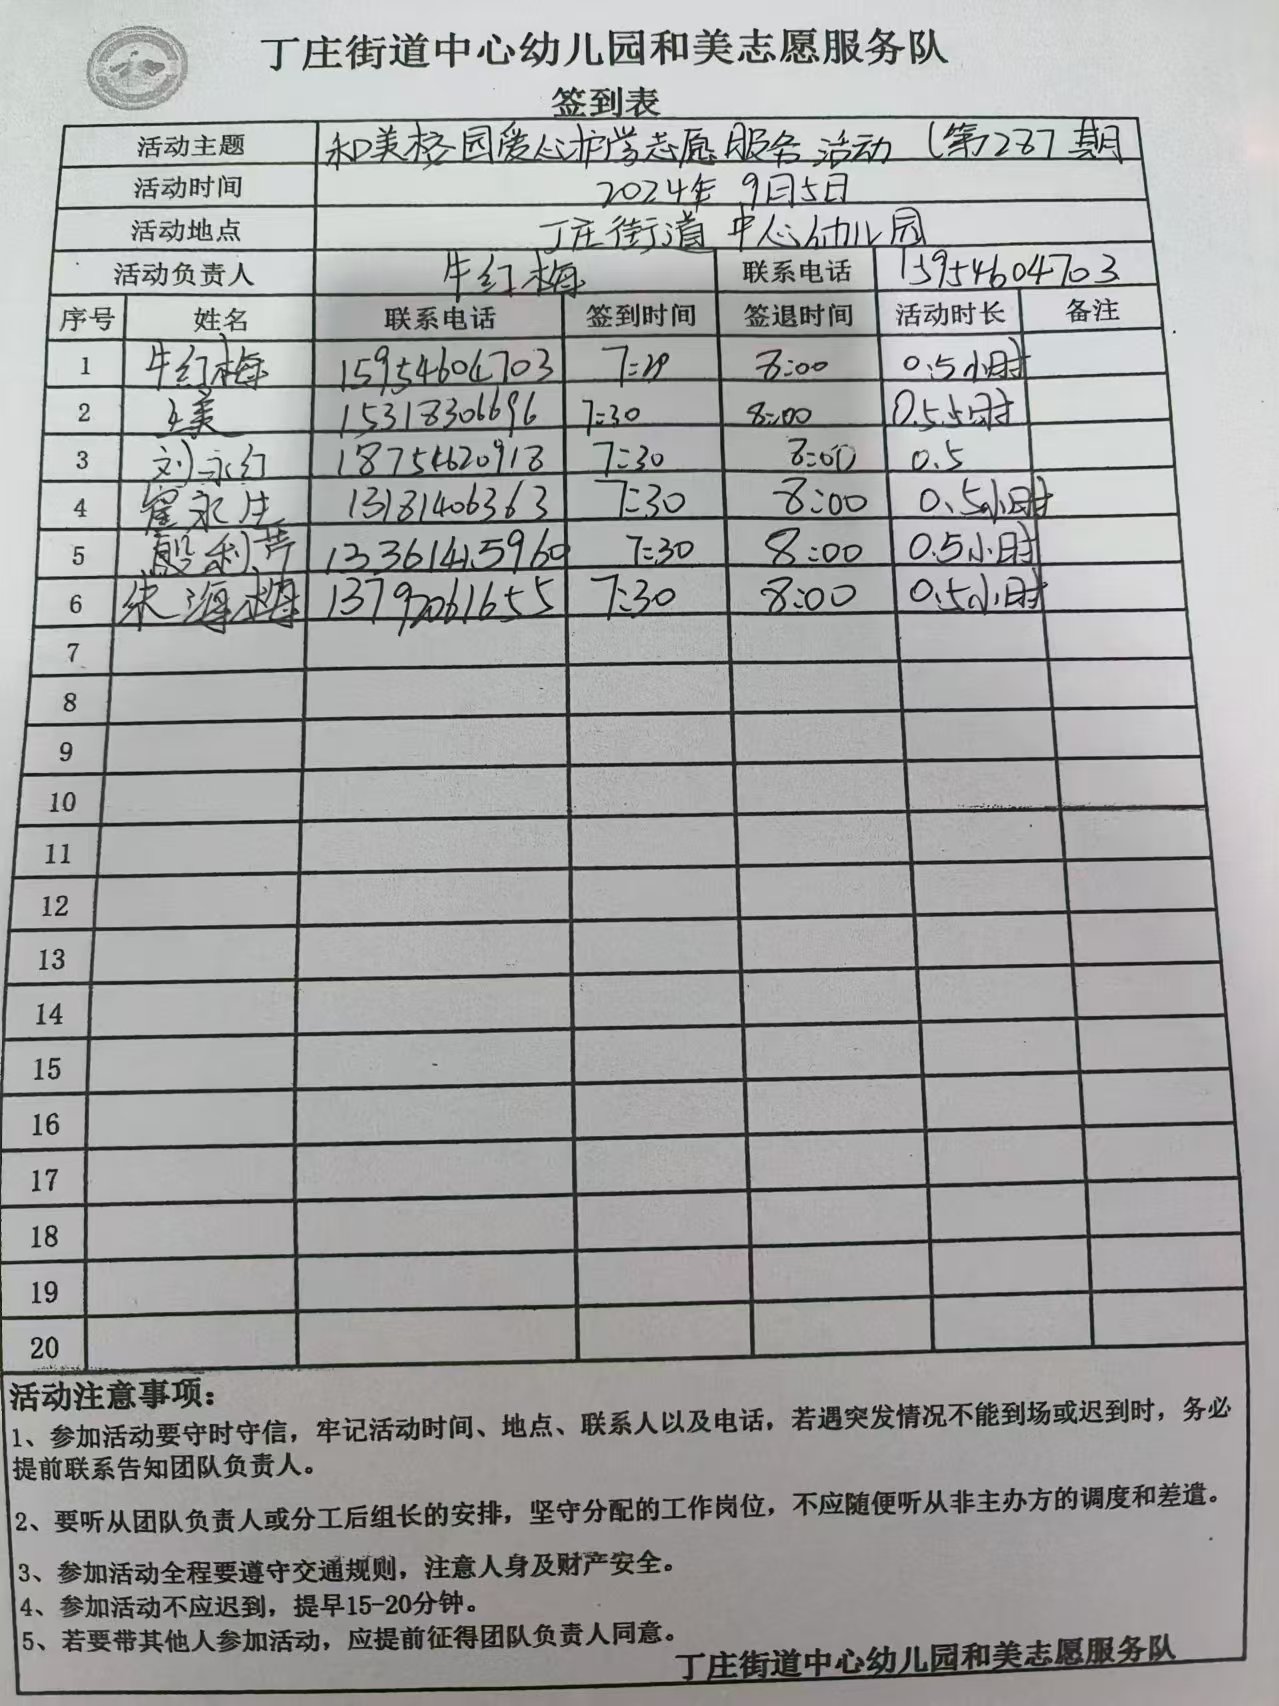 丁庄街道中心幼儿园和美志愿服务队
签到表
活动主题 和美校园爱心护学志愿服务活动（第287期
活动时间 2024年9月5日
活动地点 丁庄街道中心幼儿园
活动负责人 牛红梅 联系电话 15954604703
序号 姓名 联系电话 签到时间 签退时间 活动时长 备注
1 牛红梅 15954604703 7:29 8:00 0.5小时
2 王美 15318306696 7:30 8:00 0.5小时
3 刘永红 18754620918 7:30 8:00 0.5
4 崔永生 13181406363 7:30 8:00 0.5小时
5 殷利芹 13361415960 7:30 8:00 0.5小时
6 朱海梅 13792061655 7:30 8:00 0.5小时
7
8
9
10
11
12
13
14
15
16
17
18
19
20
活动注意事项：
1、参加活动要守时守信，牢记活动时间、地点、联系人以及电话，若遇突发情况不能到场或迟到时，务必
提前联系告知团队负责人。
2、要听从团队负责人或分工后组长的安排，坚守分配的工作岗位，不应随便听从非主办方的调度和差遣。
3、参加活动全程要遵守交通规则，注意人身及财产安全。
4、参加活动不应迟到，提早15-20分钟。
5、若要带其他人参加活动，应提前征得团队负责人同意。
丁庄街道中心幼儿园和美志愿服务队